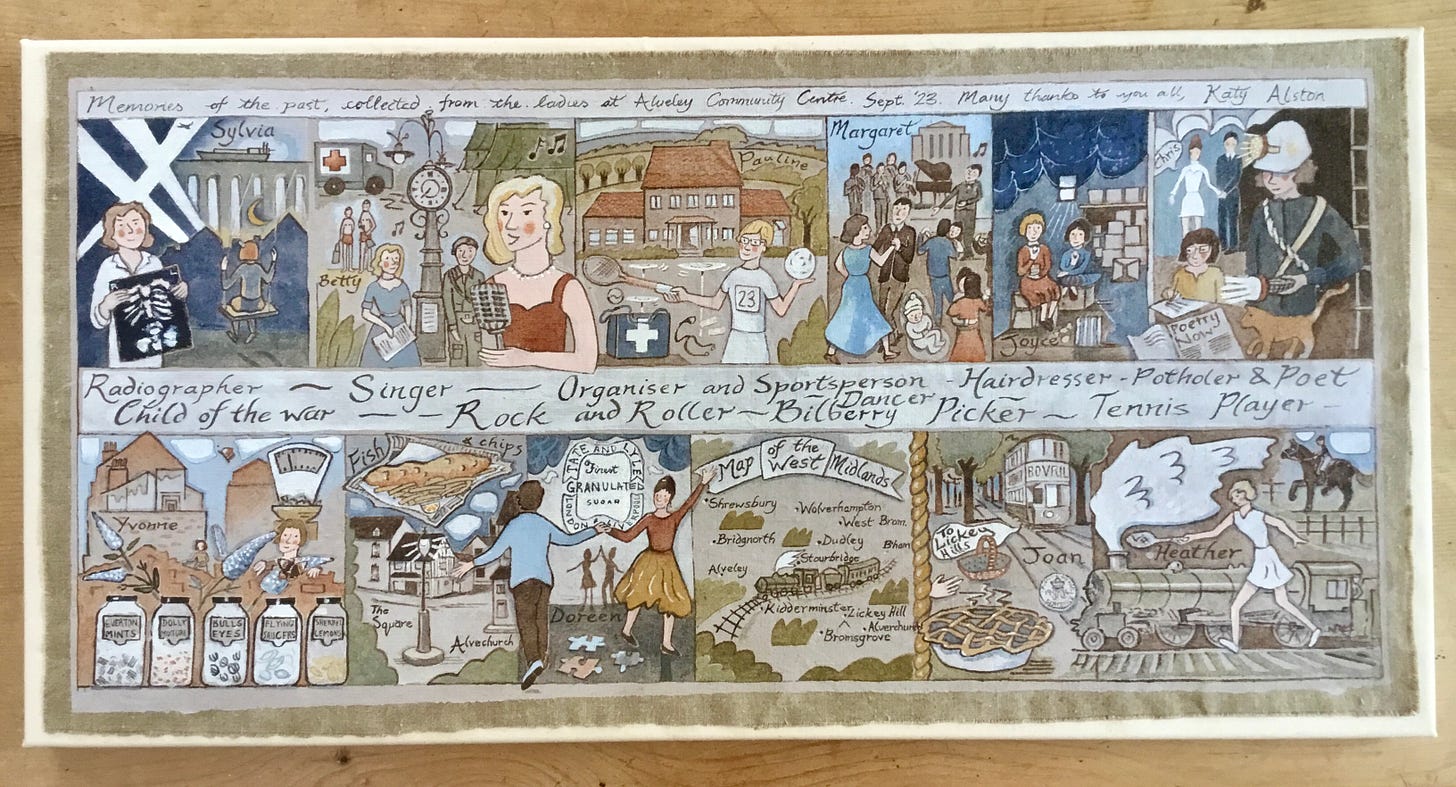 Memories of the past, collected from the ladies at Alveley Community Centre. Sept. '23. Many thanks to you all, Katy Alston
Sylvia
Betty
Pauline
23
Margaret
Joyce
Chris
Poetry
Now
Radiographer — Singer — Organiser and Sportsperson - Hairdresser - Potholer & Poet
Dancer
Child of the war — Rock and Roller ~ Bilberry Picker ~ Tennis Player -
Yvonne
EVERTON
MINTS
DOLLY
MIXTURE
BULLS
EYES
FLYING
SAUCERS
SHERBET
LEMONS
Fish & chips
The
Square
Alvechurch
TATE AND LYLE
Finest
GRANULATED
SUGAR
LONDON
LIVERPOOL
Doreen
Map of the West Midlands
Shrewsbury
Wolverhampton
West Brom.
Bridgnorth
Dudley
Bham
Stourbridge
Alveley
Kidderminster
Lickey Hill
Alvechurch
Bromsgrove
BOVRIL
To
Lickey
Hills
Joan
Heather